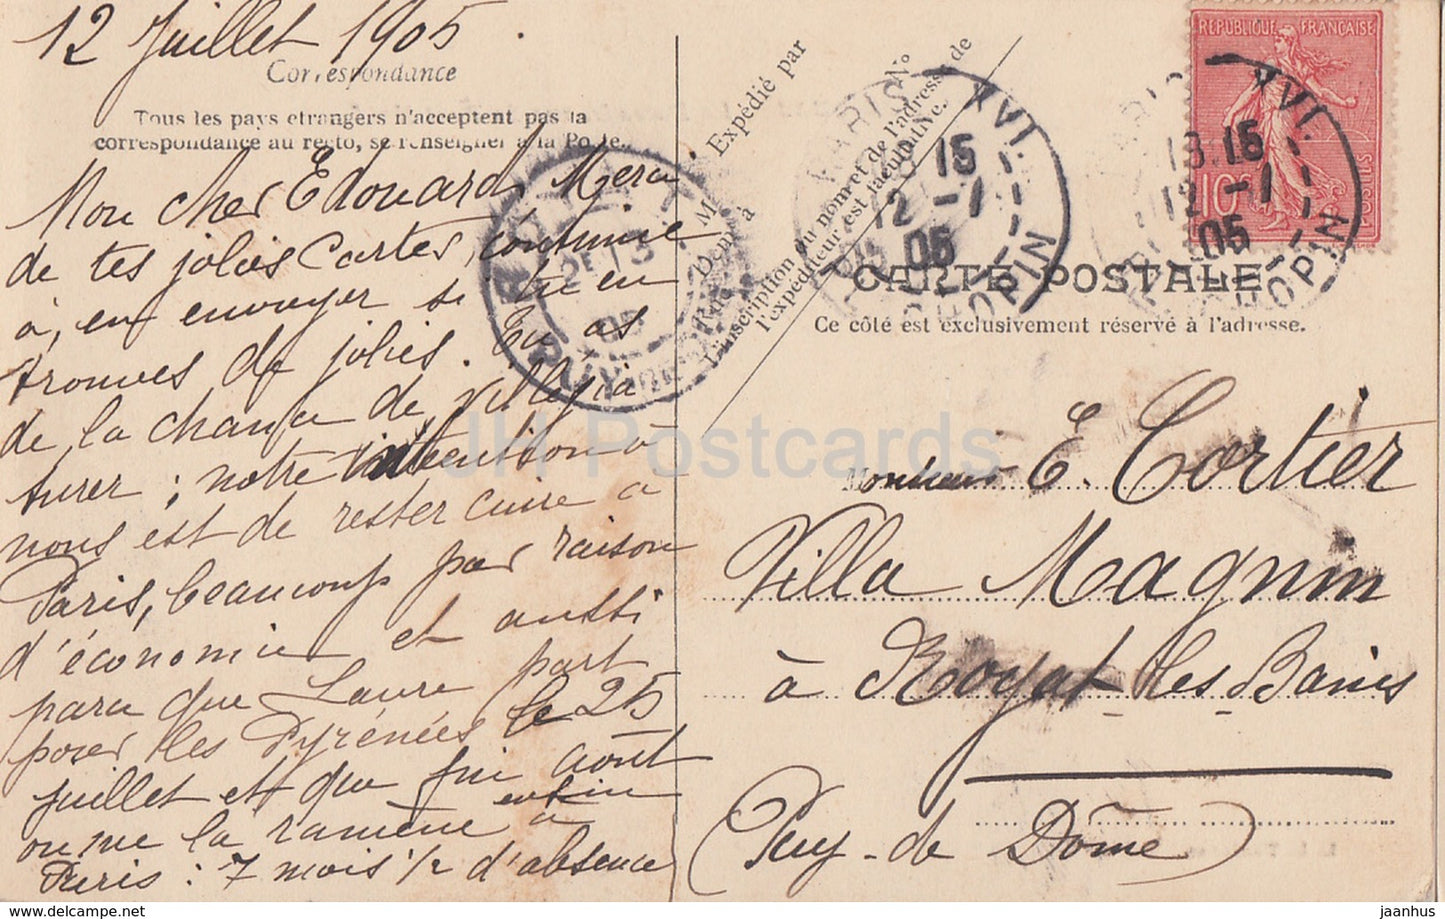 12 Juillet 1905.
Correspondance
Tous les pays etrangers n'acceptent pas la
correspondance au recto, se renseigner à la Poste.
Mon cher Edouard, Merci
de tes jolies Cartes, continue
à, en envoyer si tu en
trouves de jolies. Tu as
de la chance de villégia
turer ; notre intention à
nous est de rester cuire à
Paris, beaucoup par raison
d'économie et aussi
parce que Laure part
pour les Pyrénées le 25
juillet et que fin août
on me la ramène enfin à
Paris : 7 mois 1/2 d'absence
Expédié par
M
Demt à
Rue
No
L'inscription du nom et de l'adresse de
l'expéditeur est facultative.
ROYAT
2E 13
05
PUY-DE-DOME
PARIS XVI.
15
12 -7
05
CHOPIN
REPUBLIQUE FRANÇAISE
10c
POSTES
PARIS XVI.
13 15
12 -7
05
R. CHOPIN
CARTE POSTALE
Ce côté est exclusivement réservé à l'adresse.
Monsieur E. Cortier
Villa Magnin
à Royat-les-Bains
(Puy-de Dôme)
JH Postcards
delcampe.net
jaanhus